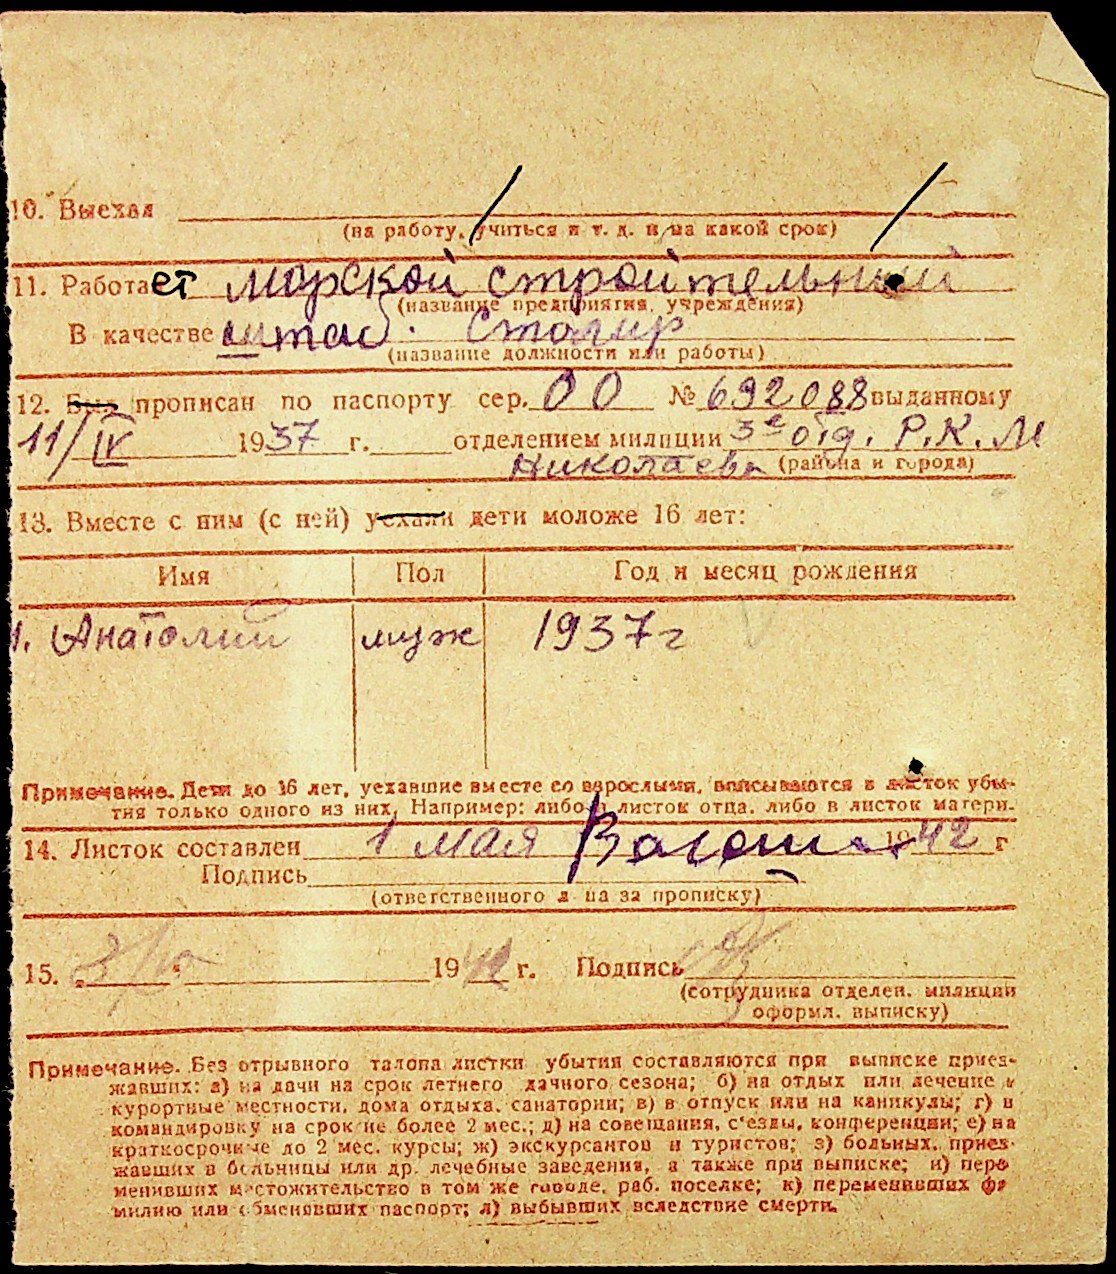 10. Выехал
(на работу, учиться и т. д. и на какой срок)
11. Работает морской строительный
(название предприятия, учреждения)
В качестве штаб. столяр
(название должности или работы)
12. Был прописан по паспорту сер. ОО № 692088 выданному
11/IV 1937 г. отделением милиции 3е отд. Р.К.М
Николаева (района и города)
13. Вместе с ним (с ней) уехали дети моложе 16 лет:
Имя Пол Год и месяц рождения
1. Анатолий муж 1937 г
Примечание. Дети до 16 лет, уехавшие вместе со взрослыми, вписываются в листок убы-
тия только одного из них. Например: либо в листок отца, либо в листок матери.
14. Листок составлен 1 мая 1942 г
Подпись
(ответственного лица за прописку)
15. 1942 г. Подпись
(сотрудника отделен. милиции
оформл. выписку)
Примечание. Без отрывного талона листки убытия составляются при выписке приез-
жавших: а) на дачи на срок летнего дачного сезона; б) на отдых или лечение в
курортные местности, дома отдыха, санатории; в) в отпуск или на каникулы; г) в
командировку на срок не более 2 мес.; д) на совещания, с'езды, конференции; е) на
краткосрочные до 2 мес. курсы; ж) экскурсантов и туристов; з) больных, приез-
жавших в больницы или др. лечебные заведения, а также при выписке; и) пере
менивших местожительство в том же городе, раб. поселке; к) переменивших фа
милию или обменявших паспорт; л) выбывших вследствие смерти.